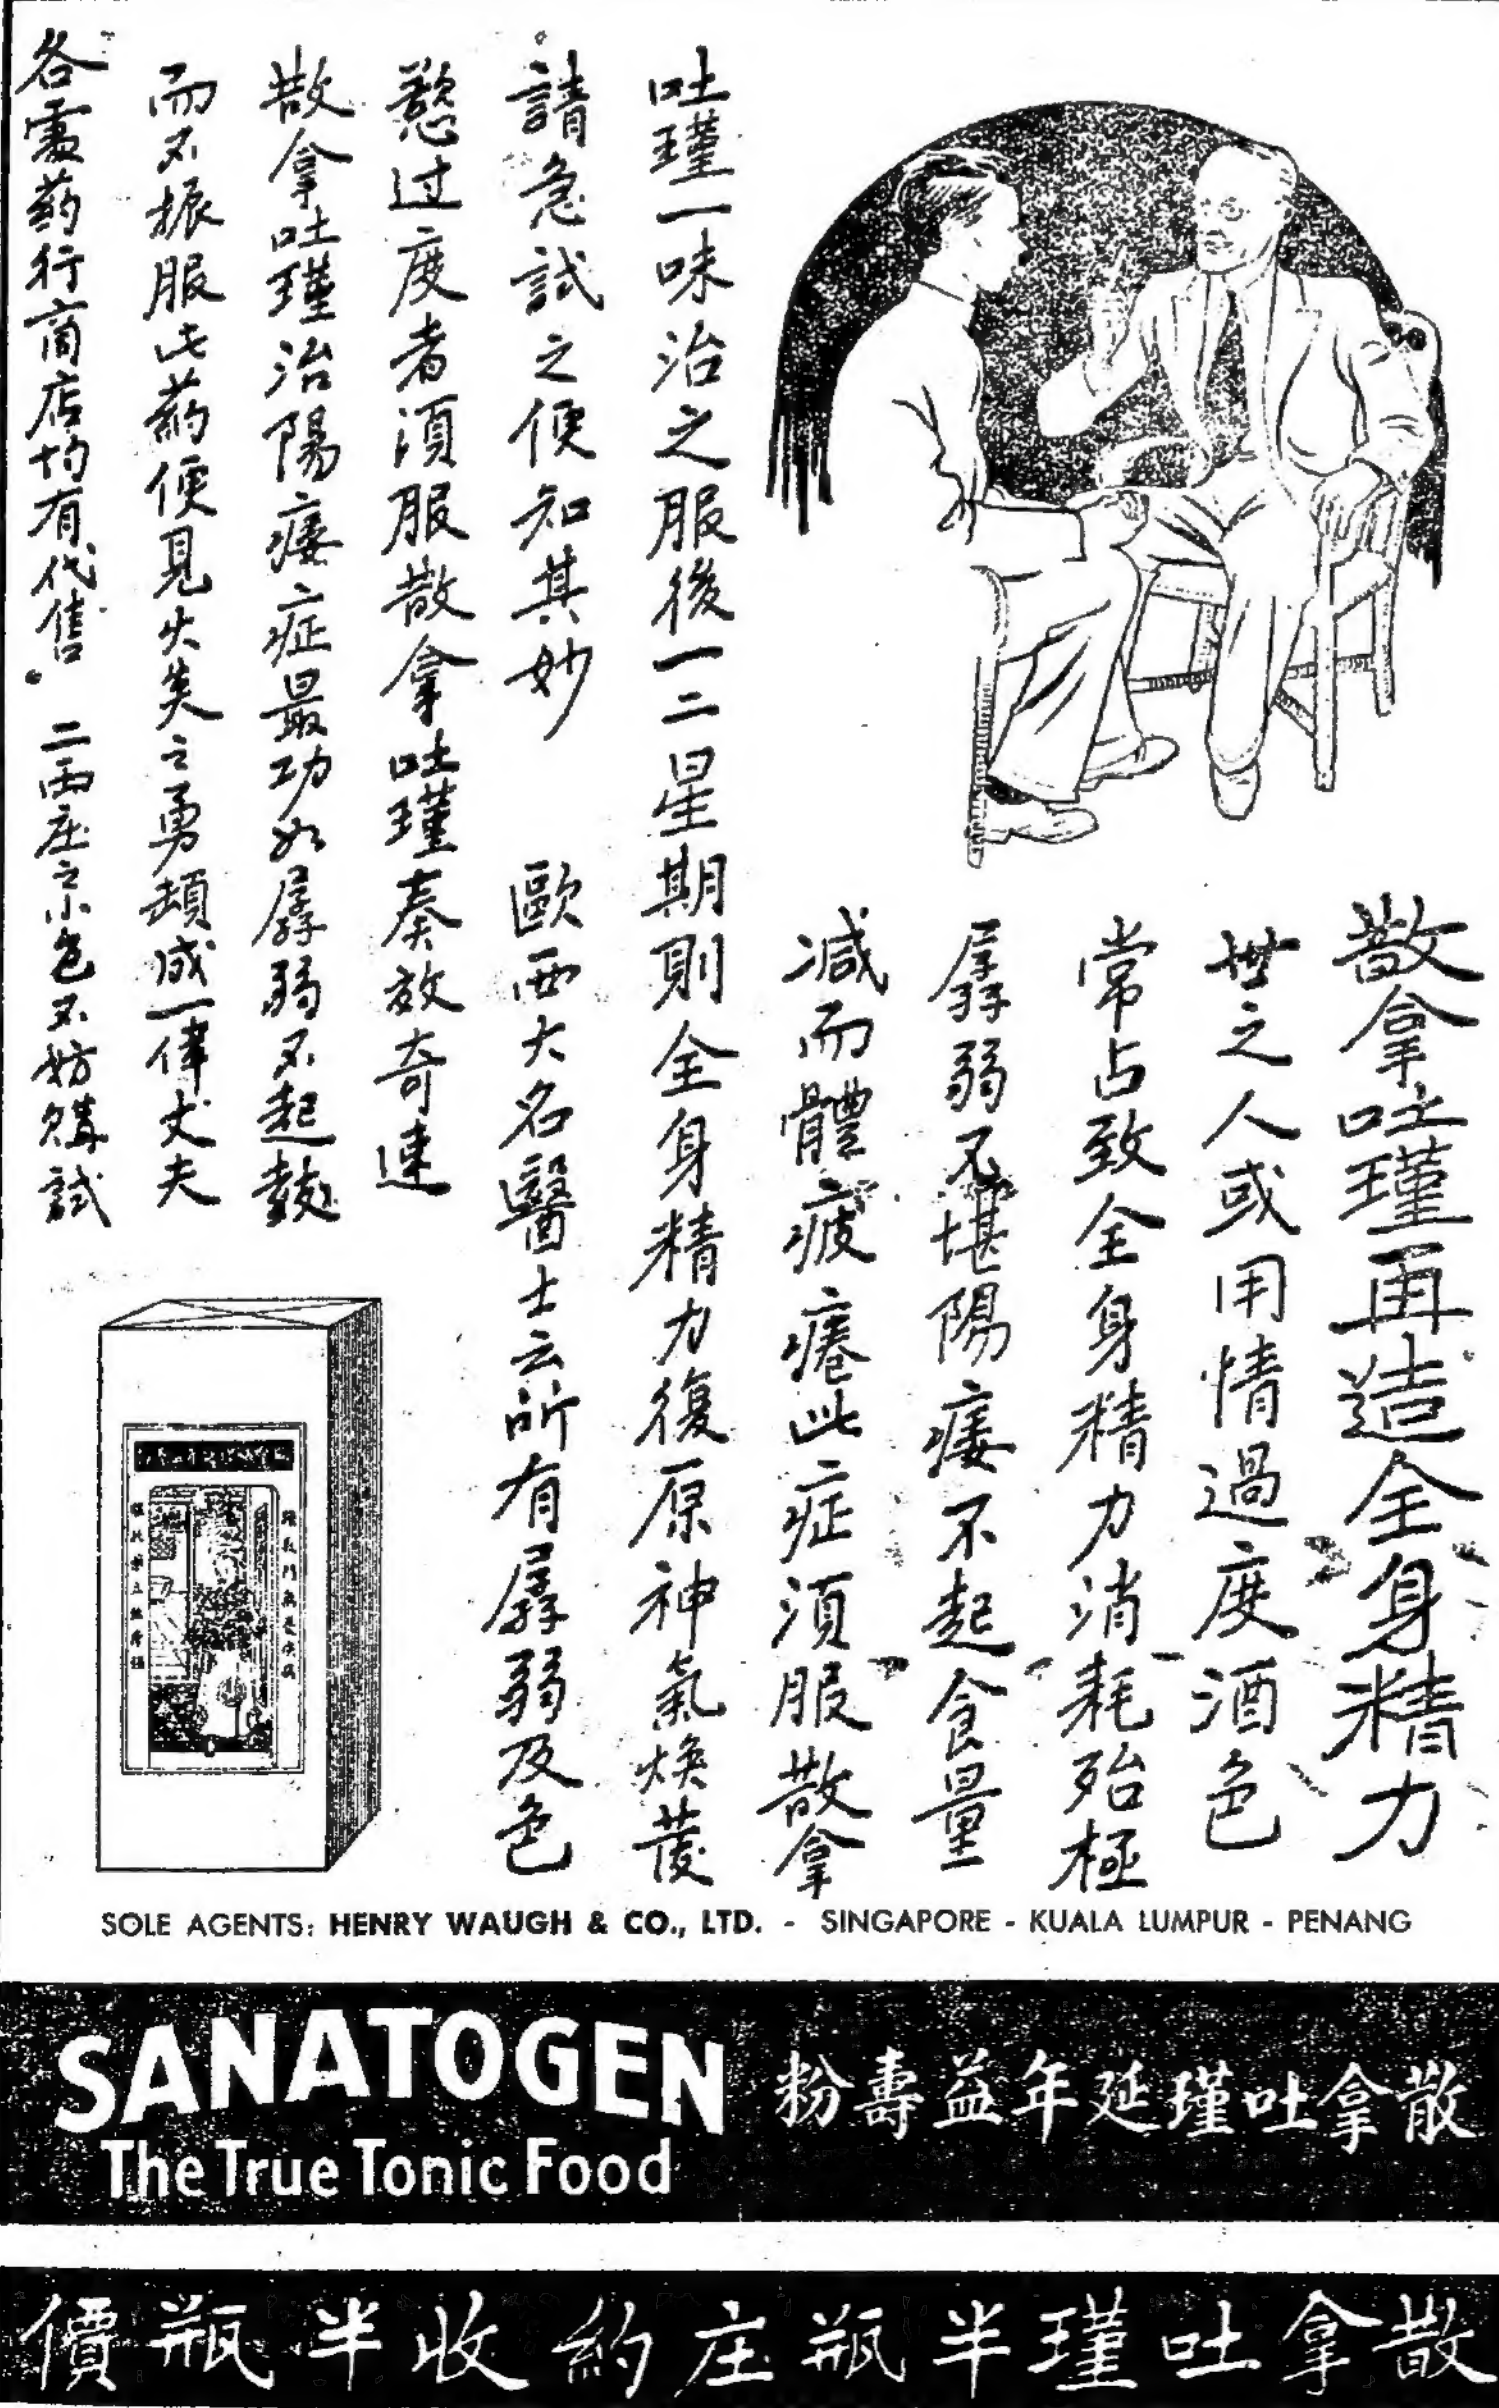 散拿吐瑾再造全身精力
世之人或用情過度酒色
常占致全身精力消耗殆極
孱弱不堪陽痿不起食量
減而體疲癃此症須服散拿
吐瑾一味治之服後一二星期則全身精力復原神氣煥發
請急試之便知其妙 歐西大名醫士云所有孱弱及色
慾过度者須服散拿吐瑾奏效奇速
散拿吐瑾治陽痿症最功如孱弱不起鼓
而不振服此药便見火英之勇頓成一偉丈夫
各處药行商店均有代售。二両庄之小包不妨購試
SOLE AGENTS: HENRY WAUGH & CO., LTD. - SINGAPORE - KUALA LUMPUR - PENANG
SANATOGEN
The True Tonic Food
散拿吐瑾延年益壽粉
散拿吐瑾半瓶庄約收半瓶價